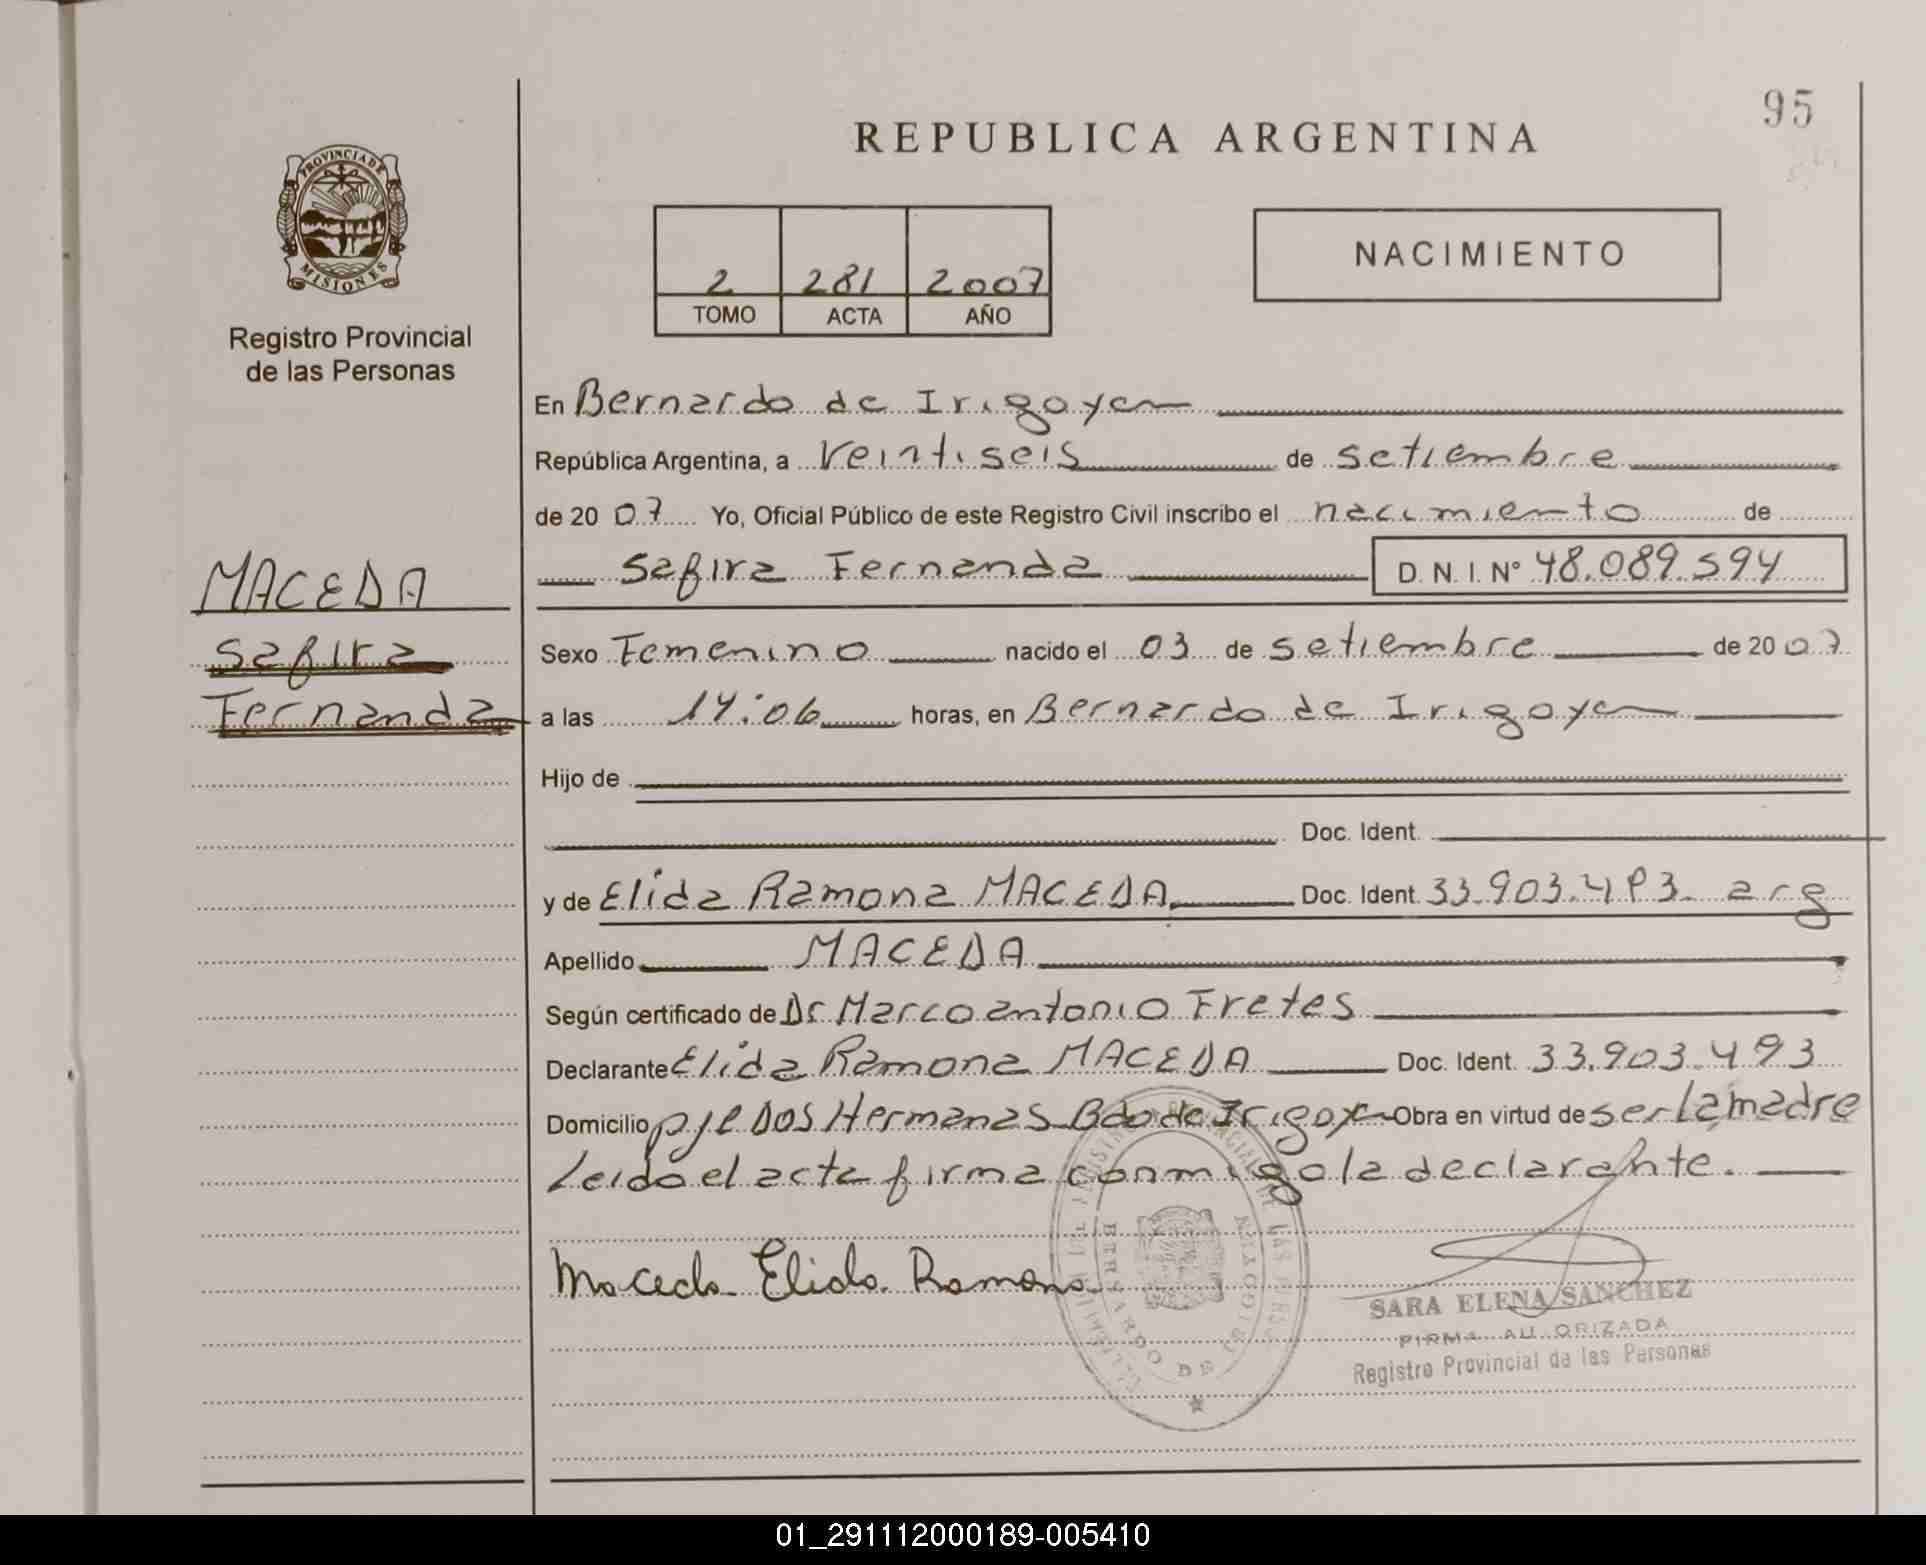 95
REPUBLICA ARGENTINA
PROVINCIA DE
MISIONES
Registro Provincial
de las Personas
2 281 2007
TOMO ACTA AÑO
NACIMIENTO
En Bernardo de Irigoyen
República Argentina, a veintiseis de setiembre
de 20 07 Yo, Oficial Público de este Registro Civil inscribo el nacimiento de
Safira Fernanda D. N. I. N° 48.089.594
MACEDA
Safira
Fernanda
Sexo Femenino nacido el 03 de setiembre de 20 07
a las 14:06 horas, en Bernardo de Irigoyen
Hijo de
Doc. Ident.
y de Elida Ramona MACEDA Doc. Ident. 33.903.493. arg
Apellido MACEDA
Según certificado de Dr Marco antonio Fretes
Declarante Elida Ramona MACEDA Doc. Ident. 33.903.493
Domicilio pje DOS Hermanas Bdo de Irigoyen Obra en virtud de ser la madre
Leido el acta firma conmigo la declarante.
Maceda Elida Ramona
BERNARDO DE IRIGOYEN
SARA ELENA SANCHEZ
FIRMA AUTORIZADA
Registro Provincial de las Personas
01_291112000189-005410